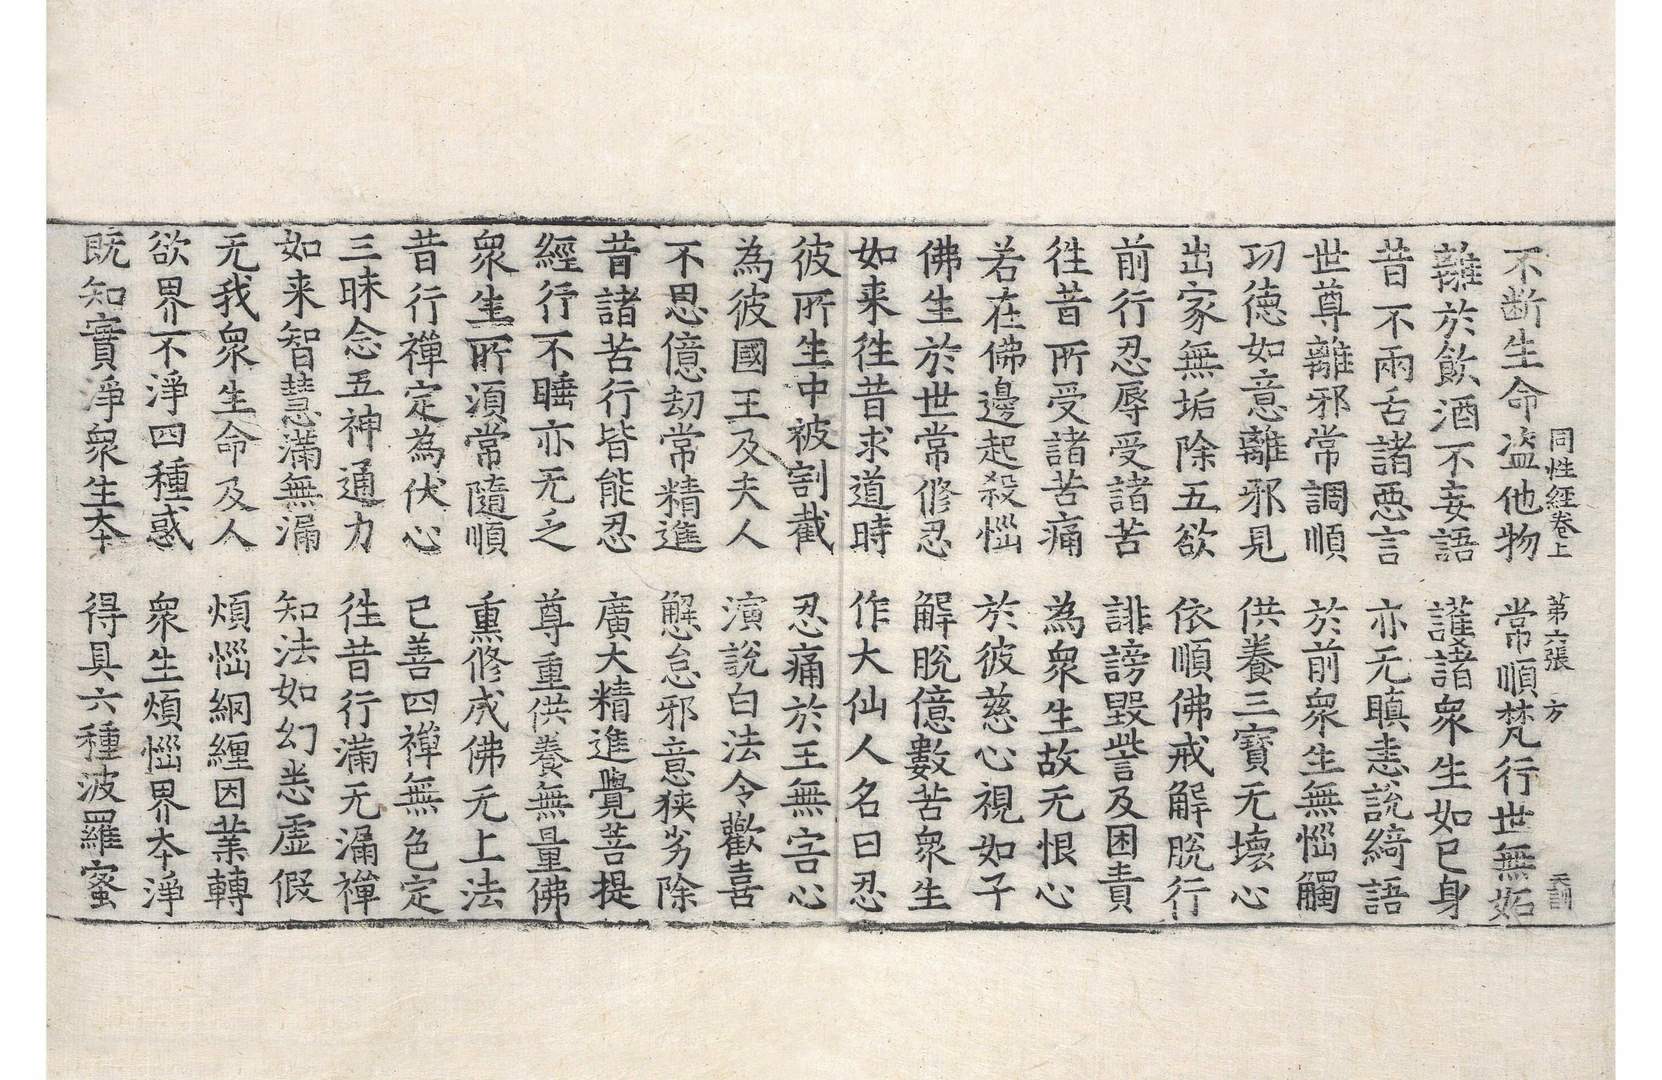 同性經卷上　第六張　方　天訓
不断生命盗他物　常順梵行世無妬
離於飲酒不妄語　護諸衆生如己身
昔不兩舌諸惡言　亦无瞋恚說綺語
世尊離邪常調順　於前衆生無惱觸
功德如意離邪見　供養三寶无壞心
出家無垢除五欲　依順佛戒解脫行
前行忍辱受諸苦　誹謗毀訾及困責
徃昔所受諸苦痛　為衆生故无恨心
若在佛邊起殺惱　於彼慈心視如子
佛生於世常修忍　解脫億數苦衆生
如来徃昔求道時　作大仙人名曰忍
彼所生中被割截　忍痛於王無害心
為彼國王及夫人　演說白法令歡喜
不思億劫常精進　懈怠邪意狹劣除
昔諸苦行皆能忍　廣大精進覺菩提
經行不睡亦无乏　尊重供養無量佛
衆生所須常隨順　熏修成佛无上法
昔行禪定為伏心　已善四禪無色定
三昧念五神通力　徃昔行滿无漏禪
如来智慧滿無漏　知法如幻悉虛假
无我衆生命及人　煩惱網纏因業轉
欲界不淨四種惑　衆生煩惱界夲淨
既知實淨衆生夲　得具六種波羅蜜